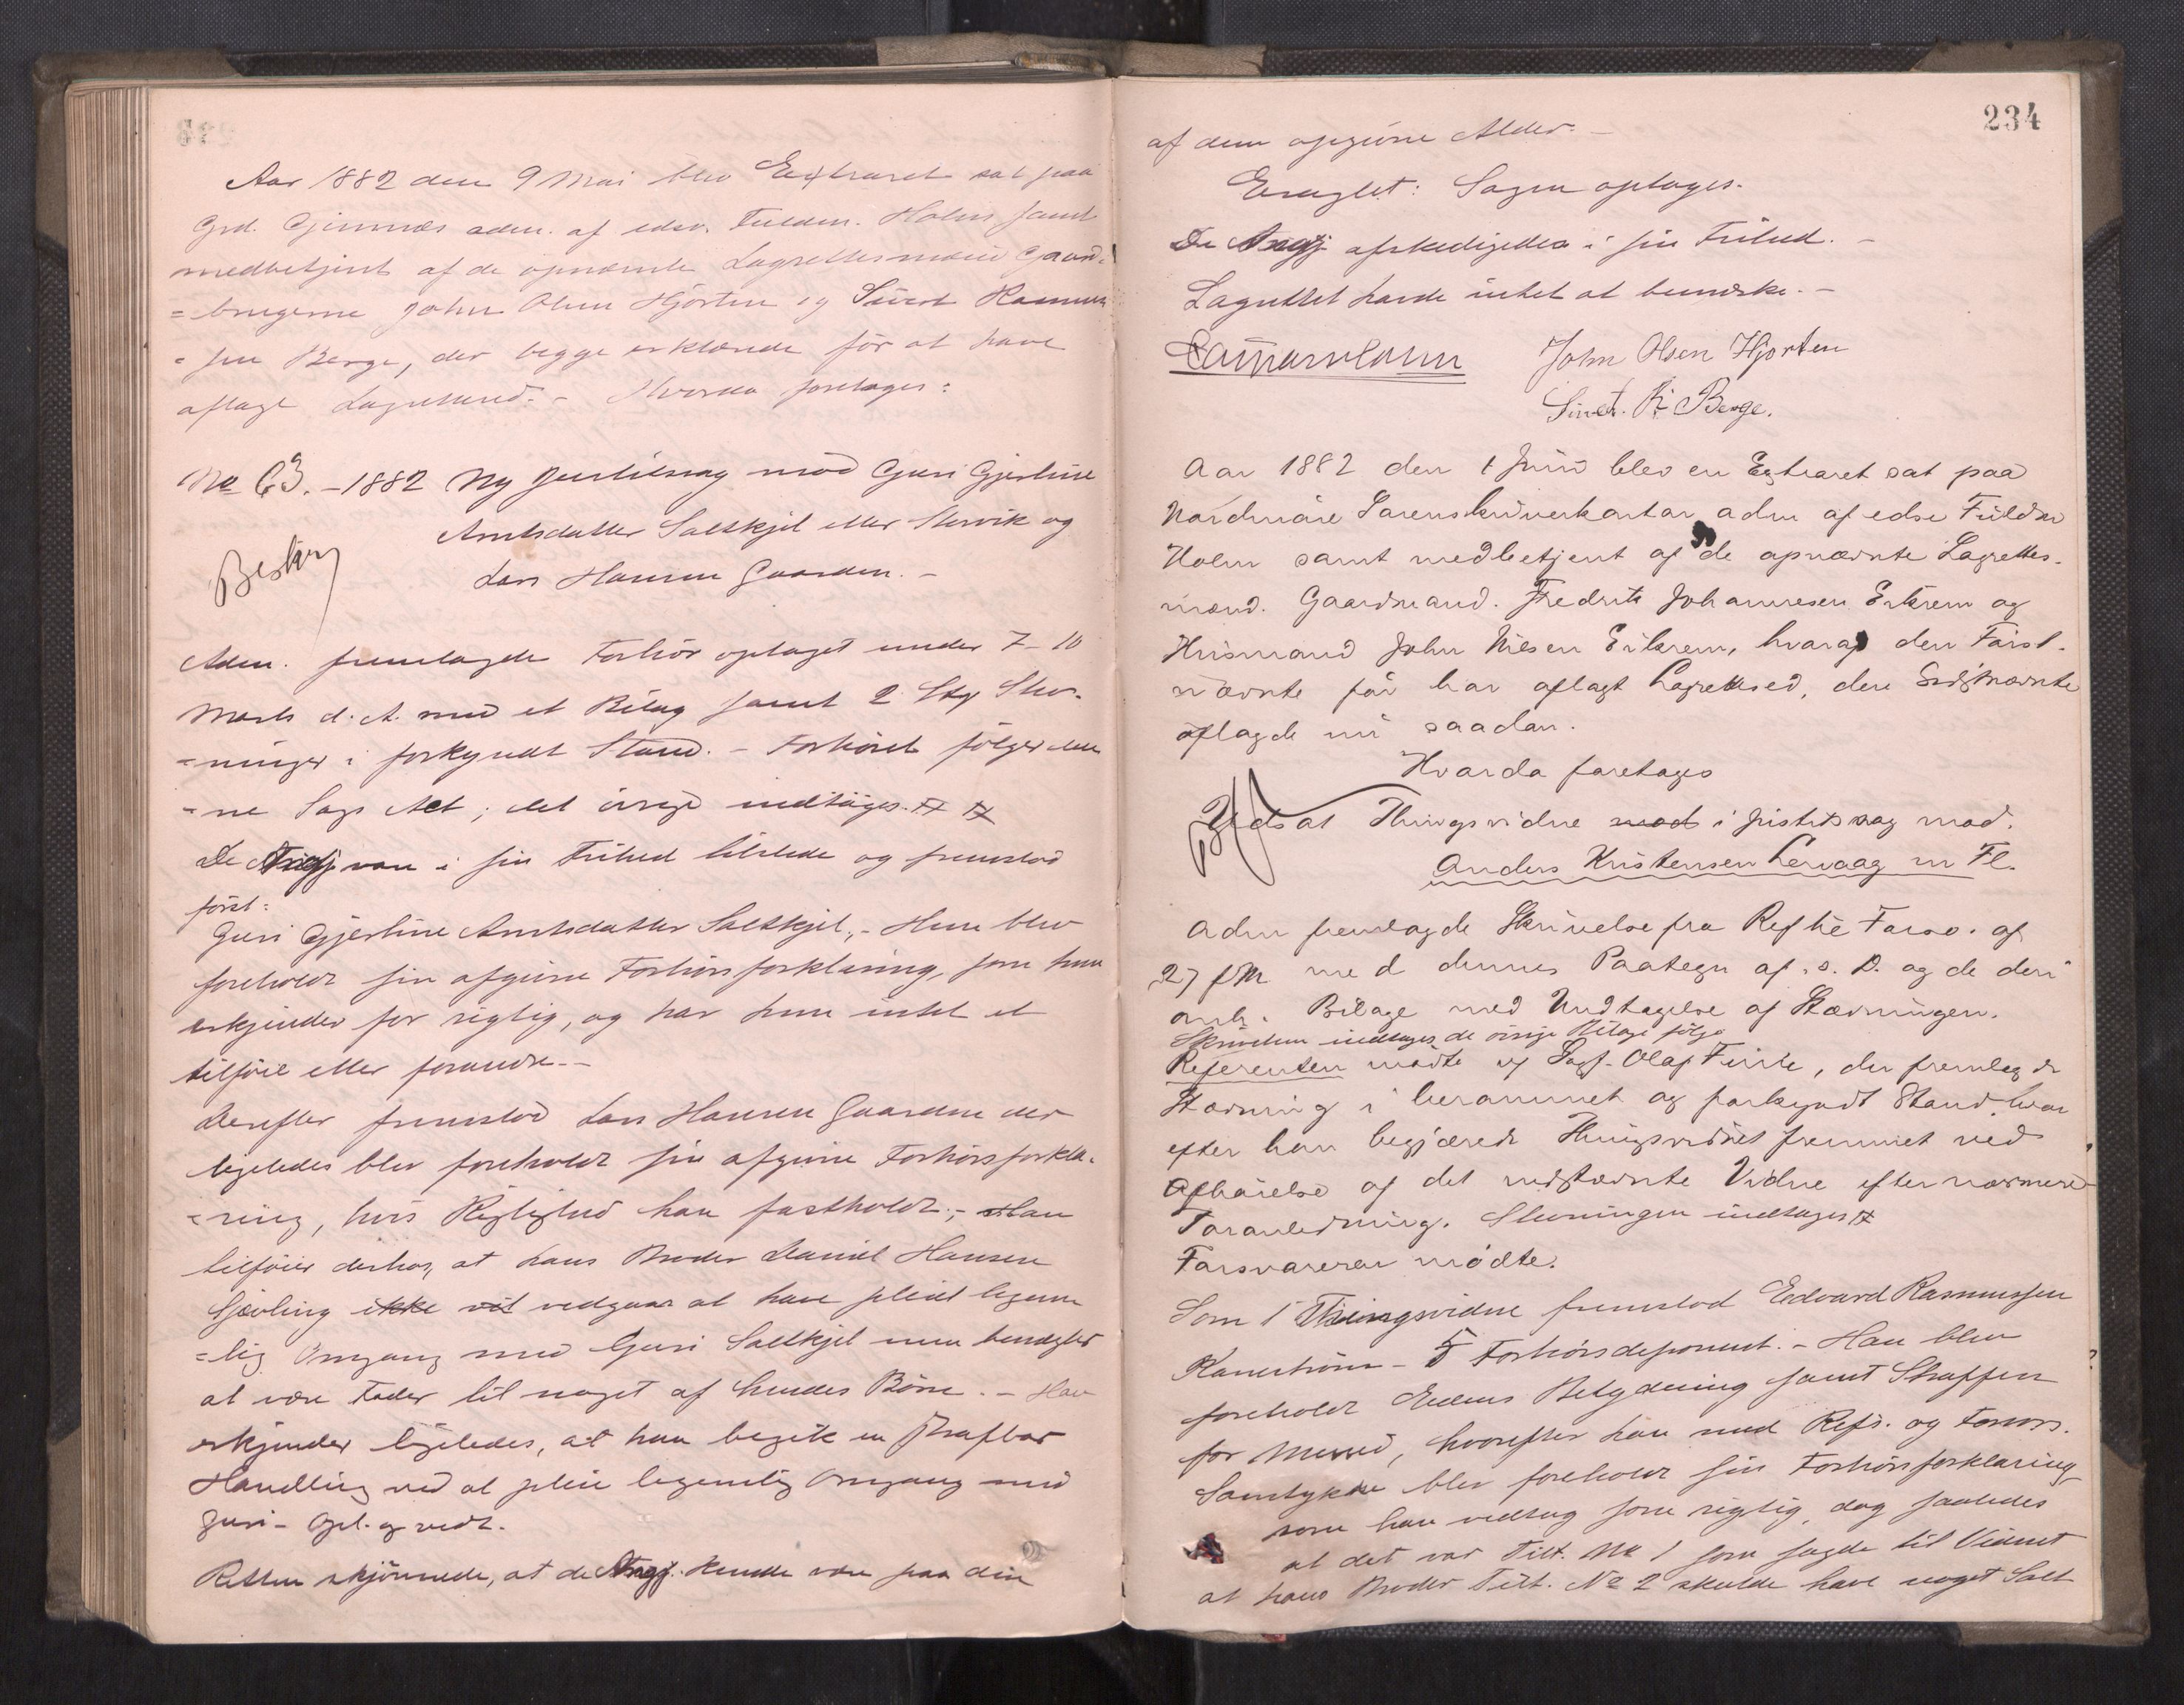 Aar 1882 den 9 Mai blev Extraret sat paa
Grd. Gjimnæs adm. af edsv. Fuldm. Holm samt
medbetjent af de opnævnte Lagrettesmænd Gaard-
=brugerne John Olsen Hjorten og Sivert Rasmus
=sen Berge, der begge erklærede før at have
aflagt Lagretteed. - Hvorda foretages:
No 63. - 1882 Ny Justitssag mod Guri Gjertine
Arntsdatter Saltkjel eller Stervik og
Lars Hansen Gaarden. -
Beskr
Adm. fremlagde Forhör optaget under 7-10
Marts d. A. med et Bilag samt 2 Stkr Stev-
=ninger i forkyndt Stand. - Forhöret fölger den
=ne Sags Act; det övrige indtages.
De Angj. vare i sin Frihed tilstede og fremstod
först:
Guri Gjertine Arntsdatter Saltkjel, - Hun blev
foreholdt sin afgivne Forhörsforklaring, som hun
erkjender for rigtig, og har hun intet at
tilföie eller forandre. -
Derefter fremstod Lars Hansen Gaarden der
ligeledes blev foreholdt sin afgivne Forhörsforkla-
=ring, hvis Rigtighed han fastholdt; - Han
tilföier derhos, at hans Broder Daniel Hansen
ikke vil vedgaar at have pleiet legem
=lig Omgang med Guri Saltkjel men benægter
at være Fader til noget af hendes Börn. - Han
erkjender ligeledes, at han begik en strafbar
Handling ved at pleie legemlig Omgang med
Guri - Opl. og vedt.
Retten skjönnede, at de Angj. kunde være paa den
234
af dem opgivne Alder. -
Eragtet: Sagen optages.
De Angj afskedigedes i sin Frihed. -
Lagrettet havde intet at bemærke. -
John Olsen Hjorten
Sivert. R. Berge.
Aar 1882 den 1 Juni blev en Extraret sat paa
Nordmöre Sorenskriverkontor adm af edsv Fuldm
Holm samt medbetjent af de opnævnte Lagrettes-
mænd. Gaardmand. Fredrik Johannesen Eikrem og
Husmand John Nilsen Eikrem, hvoraf den Först-
nævnte för har aflagt Lagretteed, den Sidstnævnte
aflagde nu saadan.
Hvorda foretages
Udsat Thingsvidne mod i Justitssag mod.
Anders Kristensen Lervaag m Fl.
Adm fremlagde Skrivelse fra Refhe Forsv. af
27 f M med dennes Paategn af s. D. og de deri
anh. Bilage med Undtagelse af Stævningen.
Skrivelsen indtages de övrige Bilage fölge
Referenten mödte ved Sagf. Olaf , der fremlagde
Stævning i berammet og forkyndt Stand, hvor
efter han begjærede Thingsvidnet fremmet ved
Afhörelse af det indstævnte Vidne efter nærmere
Foranledning. Stevningen indtages
Forsvareren mödte.
Som 1 Thingsvidne fremstod Edvard Rasmussen
Kanestrøm - 5 Forhörsdeponent. - Han blev
foreholdt Edens Betydning samt Straffen
for Meened, hvorefter han med Refs. og Forsvs.
Samtykke blev foreholdt sin Forhörsforklaring
som han vedtog som rigtig, dog saaledes
at det var Tilt. No 1 som sagde til Vidnet
at hans Broder Tilt. No 2 skulde have noget Salt